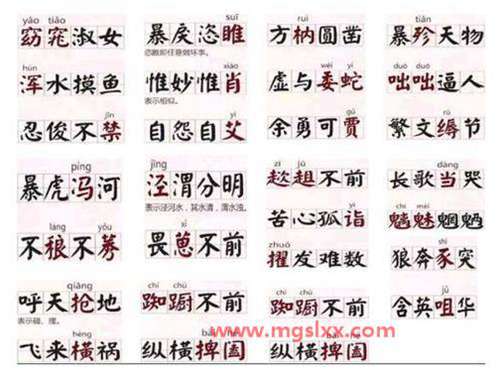 yǎo tiǎo
窈窕淑女
hún
浑水摸鱼
jīn
忍俊不禁
píng
暴虎冯河
láng yǒu
不稂不莠
qiāng
呼天抢地
表示碰、撞。
hèng
飞来横祸
suī
暴戾恣睢
恣睢即任意做坏事。
xiào
惟妙惟肖
表示相似。
yì
自怨自艾
jīng
泾渭分明
表示泾河水,其水清,渭水浊。
xǐ
畏葸不前
chí chú
踟蹰不前
bǎi hé
纵横捭阖
ruì
方枘圆凿
wēi yí
虚与委蛇
gǔ
余勇可贾
zī jū
趑趄不前
yì
苦心孤诣
zhuó
擢发难数
chí chú
踟蹰不前
bǎi hé
纵横捭阖
tiǎn
暴殄天物
duō duō
咄咄逼人
rù
繁文缛节
dàng
长歌当哭
魑魅魍魉
狼奔豕突
jǔ
含英咀华
www.mgslxx.com